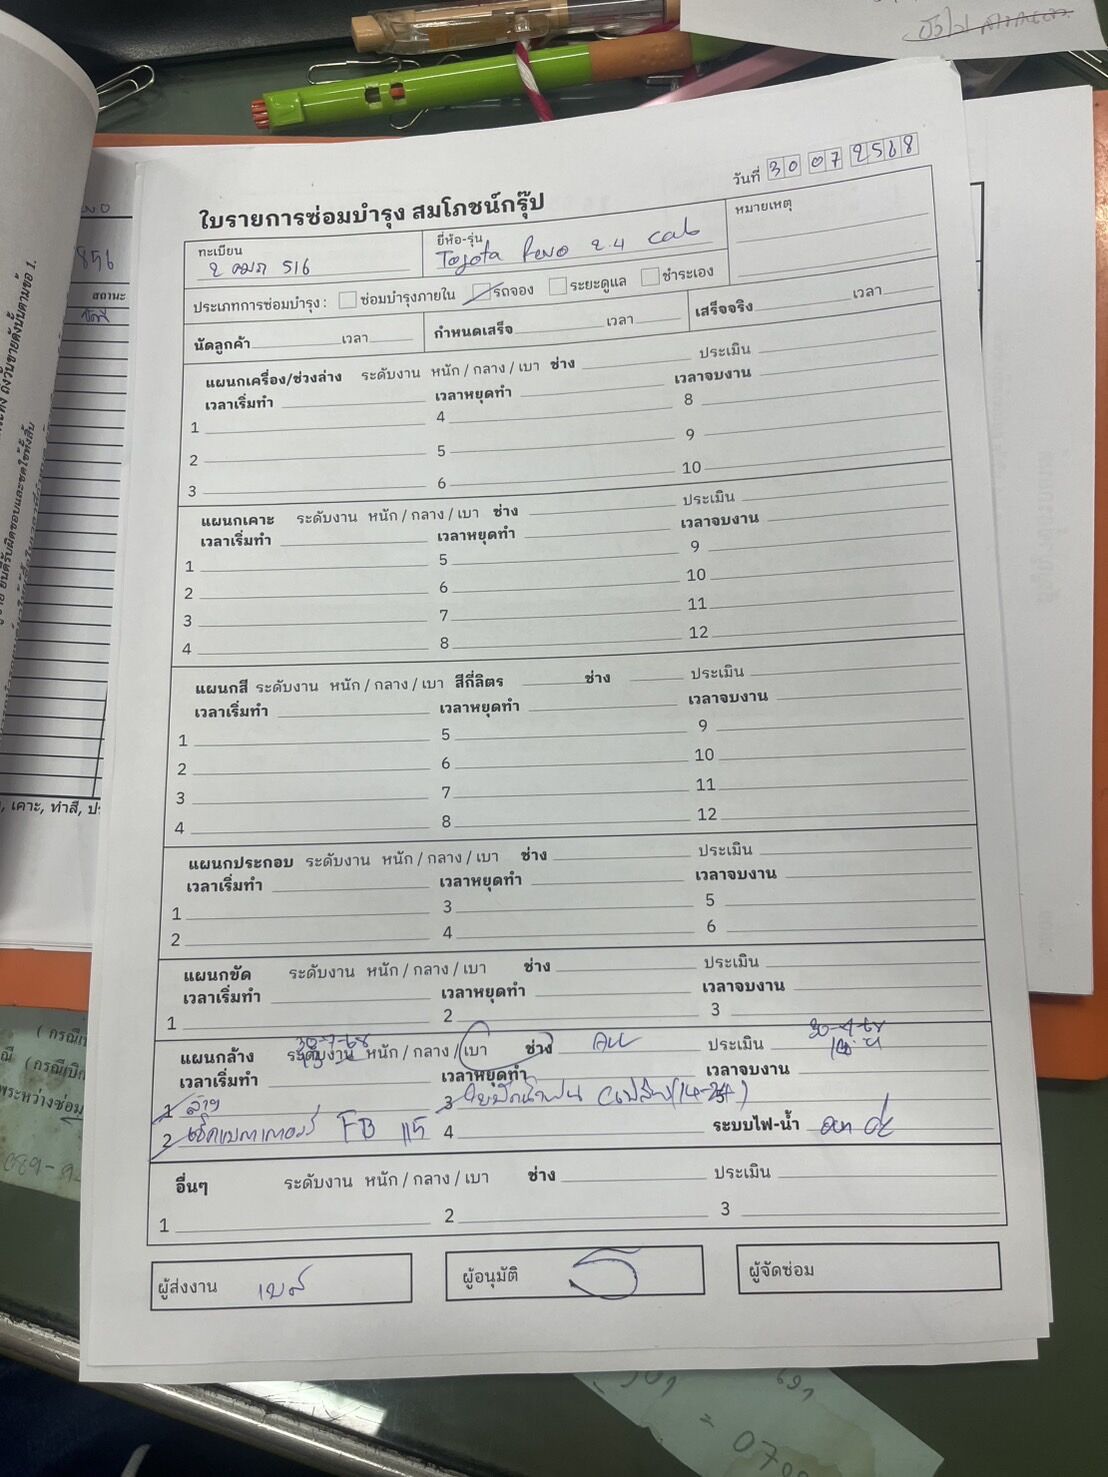 วันที่ 30 07 2568
ใบรายการซ่อมบำรุง สมโภชน์กรุ๊ป
ทะเบียน ยี่ห้อ-รุ่น หมายเหตุ
2 516 Toyota Revo 2.4 cab
ประเภทการซ่อมบำรุง : ซ่อมบำรุงภายใน รถจอง ระยะดูแล ชำระเอง
นัดลูกค้า เวลา กำหนดเสร็จ เวลา เสร็จจริง เวลา
แผนกเครื่อง/ช่วงล่าง ระดับงาน หนัก / กลาง / เบา ช่าง ประเมิน
เวลาเริ่มทำ เวลาหยุดทำ เวลาจบงาน
1 4 8
2 5 9
3 6 10
แผนกเคาะ ระดับงาน หนัก / กลาง / เบา ช่าง ประเมิน
เวลาเริ่มทำ เวลาหยุดทำ เวลาจบงาน
1 5 9
2 6 10
3 7 11
4 8 12
แผนกสี ระดับงาน หนัก / กลาง / เบา สีกี่ลิตร ช่าง ประเมิน
เวลาเริ่มทำ เวลาหยุดทำ เวลาจบงาน
1 5 9
2 6 10
3 7 11
4 8 12
แผนกประกอบ ระดับงาน หนัก / กลาง / เบา ช่าง ประเมิน
เวลาเริ่มทำ เวลาหยุดทำ เวลาจบงาน
1 3 5
2 4 6
แผนกขัด ระดับงาน หนัก / กลาง / เบา ช่าง ประเมิน
เวลาเริ่มทำ เวลาหยุดทำ เวลาจบงาน
1 2 3
30-7-68
แผนกล้าง ระดับงาน หนัก / กลาง / เบา ช่าง ประเมิน
เวลาเริ่มทำ เวลาหยุดทำ เวลาจบงาน
1 ล้าง 3 ใบปัดน้ำฝน
2 เช็คแบตเตอรรี่ FB 115 4 ระบบไฟ-น้ำ
อื่นๆ ระดับงาน หนัก / กลาง / เบา ช่าง ประเมิน
1 2 3
ผู้ส่งงาน เบส ผู้อนุมัติ ผู้จัดซ่อม
856
สถานะ
, เคาะ, ทำสี,
( กรณี
พระหว่างซ่อม